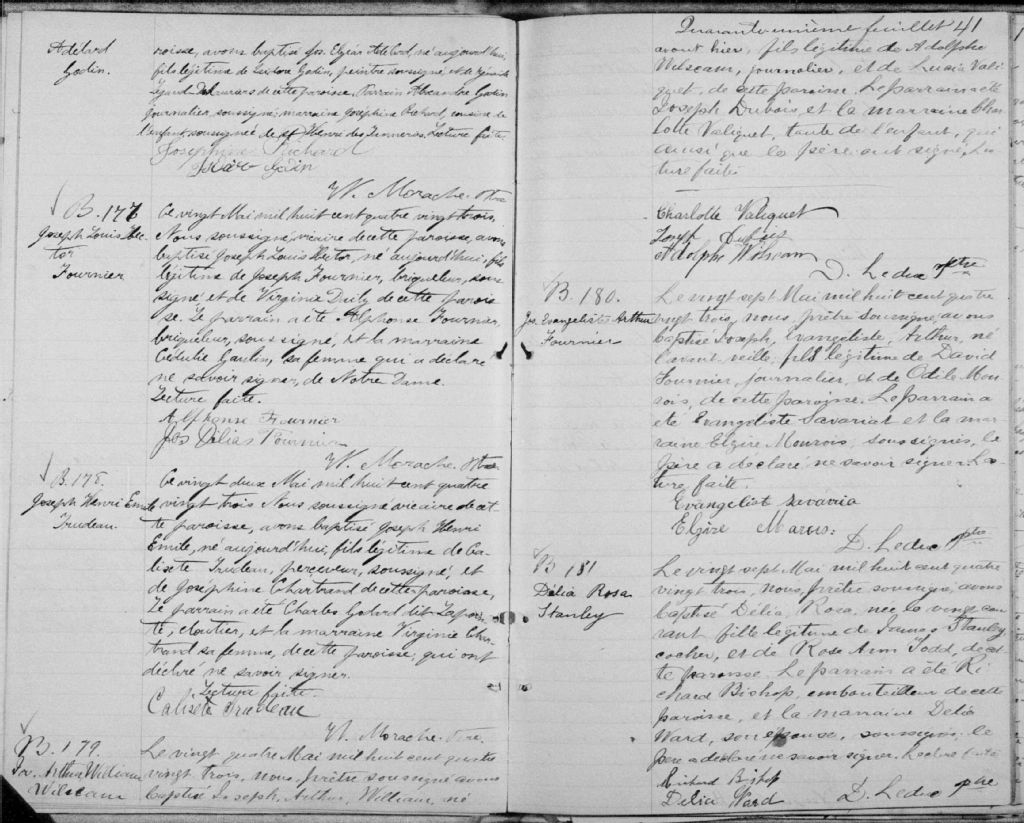 Adelard
Godin.
roisse, avons baptisé Jos. Elzéar Adelard, né aujourd'hui,
fils légitime de Isidore Godin, peintre soussigné et de
de cette paroisse, Parrain Alexandre Godin
journalier, soussigné; marraine Joséphine Richard, cousine de
l'enfant, soussignée de St Henri des Tanneries, Lecture faite
Joséphine Richard
W. Morache. Ptre
B. 177
Joseph Louis Hec-
tor
Fournier
Ce vingt Mai mil huit cent quatre vingt trois,
Nous soussigné, vicaire de cette paroisse, avons
baptisé Joseph Louis Hector, né aujourd'hui, fils
légitime de Joseph Fournier, briqueleur, sous
signé et de Virginie Duly de cette parois
se. Le parrain a été Alphonse Fournier,
briqueleur, soussigné, et la marraine
Cédulie Gaulin, sa femme qui a déclaré
ne savoir signer, de Notre Dame.
Lecture faite.
Alphonse Fournier
Jos Délias Fournier
W. Morache. Ptre
B. 178.
Joseph Henri Emile
Trudeau.
Ce vingt deux Mai mil huit cent quatre
vingt trois Nous soussigné vicaire de cet-
te paroisse, avons baptisé Joseph Henri
Emile, né aujourd'hui, fils légitime de Ca-
lisete Trudeau, perçeveur, soussigné, et
de Joséphine Chartrand de cette paroisse,
Le parrain a été Charles Godard dit Lapoin-
te, cloutier, et la marraine Virginie Char-
trand sa femme, de cette paroisse, qui ont
déclaré ne savoir signer.
Lecture faite.
Calisete Trudeau
W. Morache. Ptre.
B. 179.
Jos. Arthur William
Wilscam
Le vingt quatre Mai mil huit cent quatre
vingt trois, nous, prêtre soussigné avons
baptisé Joseph, Arthur, William, né
Quarante unième feuillet 41
avant hier, fils légitime de Adolphe
Wilscam, journalier, et de Lucie Vali-
quet, de cette paroisse. Le parrain a été
Joseph Dubois, et la marraine Char-
lotte Valiquet, tante de l'enfant, qui
ainsi que le père ont signé. Lec-
ture faite.
Charlotte Valiquet
Joseph Dubois
Adolphe Wilscam
D. Leduc ptre
B. 180.
Jos. Evangeliste Arthur
Fournier
Le vingt sept Mai mil huit cent quatre
vingt trois, nous, prêtre soussigné, avons
baptisé Joseph, Evangeliste, Arthur, né
l'avant veille, fils légitime de David
Fournier, journalier, et de Odile Mou-
rois, de cette paroisse. Le parrain a
été Evangeliste Savariat et la mar
raine Elgire Mourois, soussignés, le
père a déclaré ne savoir signer. Lec-
ture faite.
Evangelist Savaria
Elgire Marus:
D. Leduc ptre
B 181
Délia Rosa
Stanley
Le vingt sept Mai mil huit cent quatre
vingt trois, nous, prêtre soussigné, avons
baptisé Délia, Rosa, née le vingt cou
rant fille légitime de James Stanley,
cocher, et de Rose Ann Todd, de cet-
te paroisse. Le parrain a été Ri
chard Bishop, embouteilleur de cette
paroisse, et la marraine Délia
Ward, son épouse, soussignés, le
père a déclaré ne savoir signer, Lecture faite
Richard Bishop
Delia Ward
D. Leduc ptre